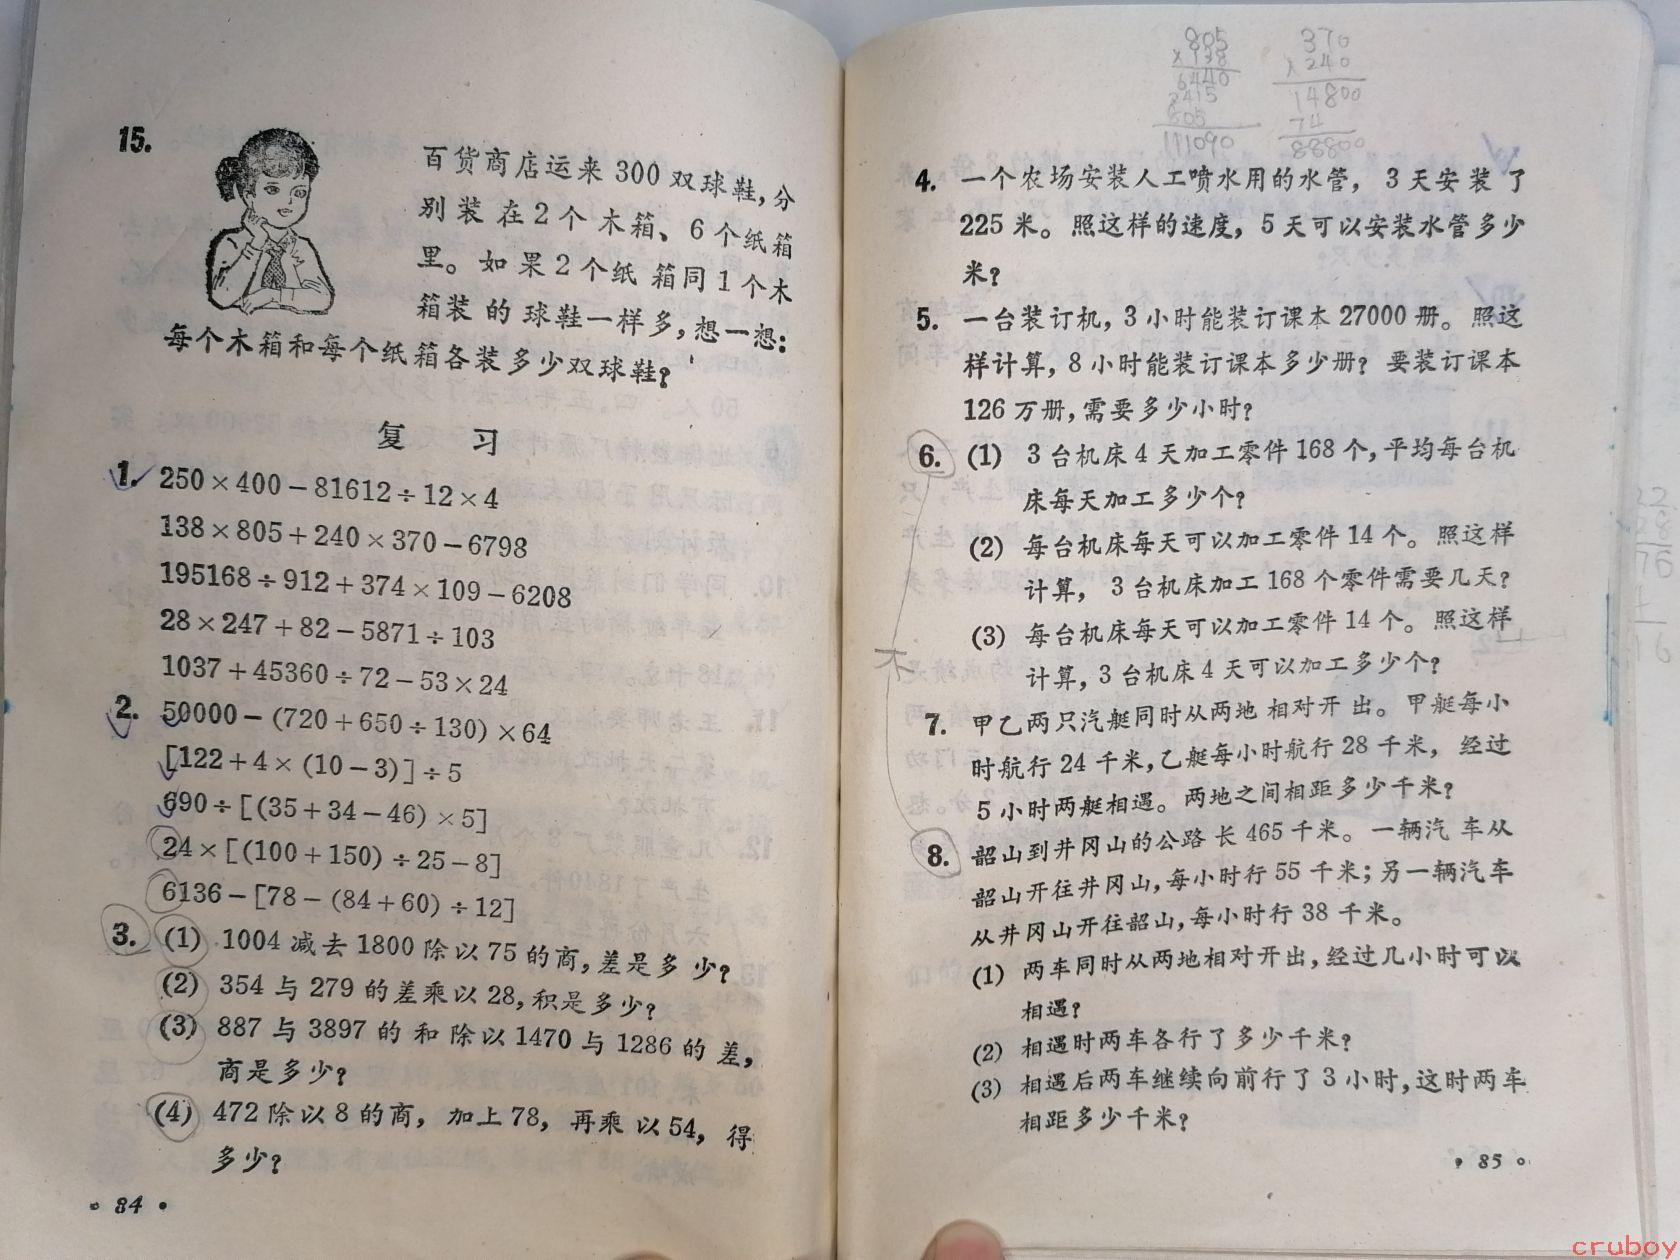 15.
百货商店运来300双球鞋,分
别装在2个木箱、6个纸箱
里。如果2个纸箱同1个木
箱装的球鞋一样多,想一想:
每个木箱和每个纸箱各装多少双球鞋?
复 习
1. 250×400－81612÷12×4
138×805＋240×370－6798
195168÷912＋374×109－6208
28×247＋82－5871÷103
1037＋45360÷72－53×24
2. 50000－(720＋650÷130)×64
[122＋4×(10－3)]÷5
690÷[(35＋34－46)×5]
24×[(100＋150)÷25－8]
6136－[78－(84＋60)÷12]
3. (1) 1004减去1800除以75的商,差是多少?
(2) 354与279的差乘以28,积是多少?
(3) 887与3897的和除以1470与1286的差,
商是多少?
(4) 472除以8的商，加上78，再乘以54，得
多少?
• 84 •
805
×138
6440
2415
805
111090
370
×240
14800
74
88800
4. 一个农场安装人工喷水用的水管，3天安装了
225米。照这样的速度，5天可以安装水管多少
米?
5. 一台装订机，3小时能装订课本27000册。照这
样计算，8小时能装订课本多少册? 要装订课本
126万册,需要多少小时?
6. (1) 3台机床4天加工零件168个,平均每台机
床每天加工多少个?
(2) 每台机床每天可以加工零件14个。照这样
计算，3台机床加工168个零件需要几天?
(3) 每台机床每天可以加工零件14个。照这样
计算,3台机床4天可以加工多少个?
7. 甲乙两只汽艇同时从两地相对开出。甲艇每小
时航行24千米,乙艇每小时航行28千米，经过
5小时两艇相遇。两地之间相距多少千米?
8. 韶山到井冈山的公路长465千米。一辆汽车从
韶山开往井冈山,每小时行55千米;另一辆汽车
从井冈山开往韶山,每小时行38千米。
(1) 两车同时从两地相对开出,经过几小时可以
相遇?
(2) 相遇时两车各行了多少千米?
(3) 相遇后两车继续向前行了3小时,这时两车
相距多少千米?
• 85 •
cruboy